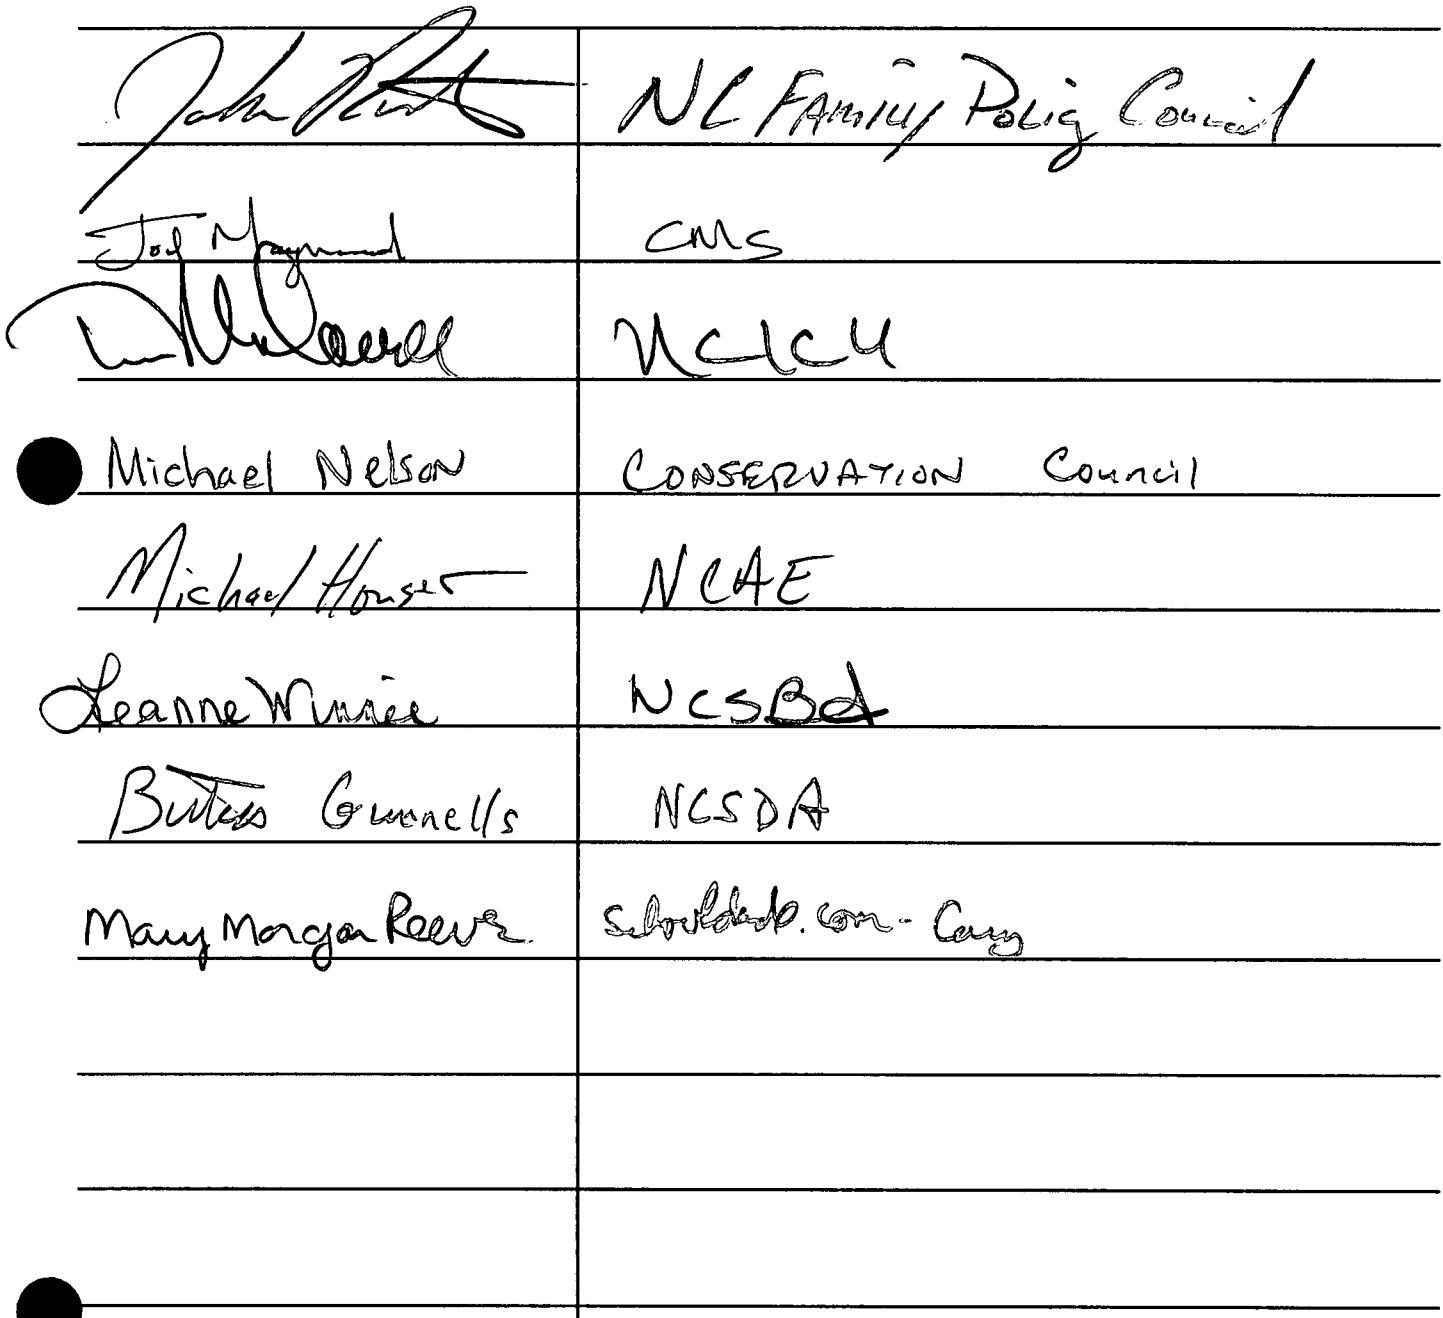 John NC Family Policy Council
CMS
NCICU
Michael Nelson CONSERVATION Council
Michael Houser NCAE
Leanne Winner NCSBA
Gunnells NCSDA
Mary Morgan Reeve .com - Cary